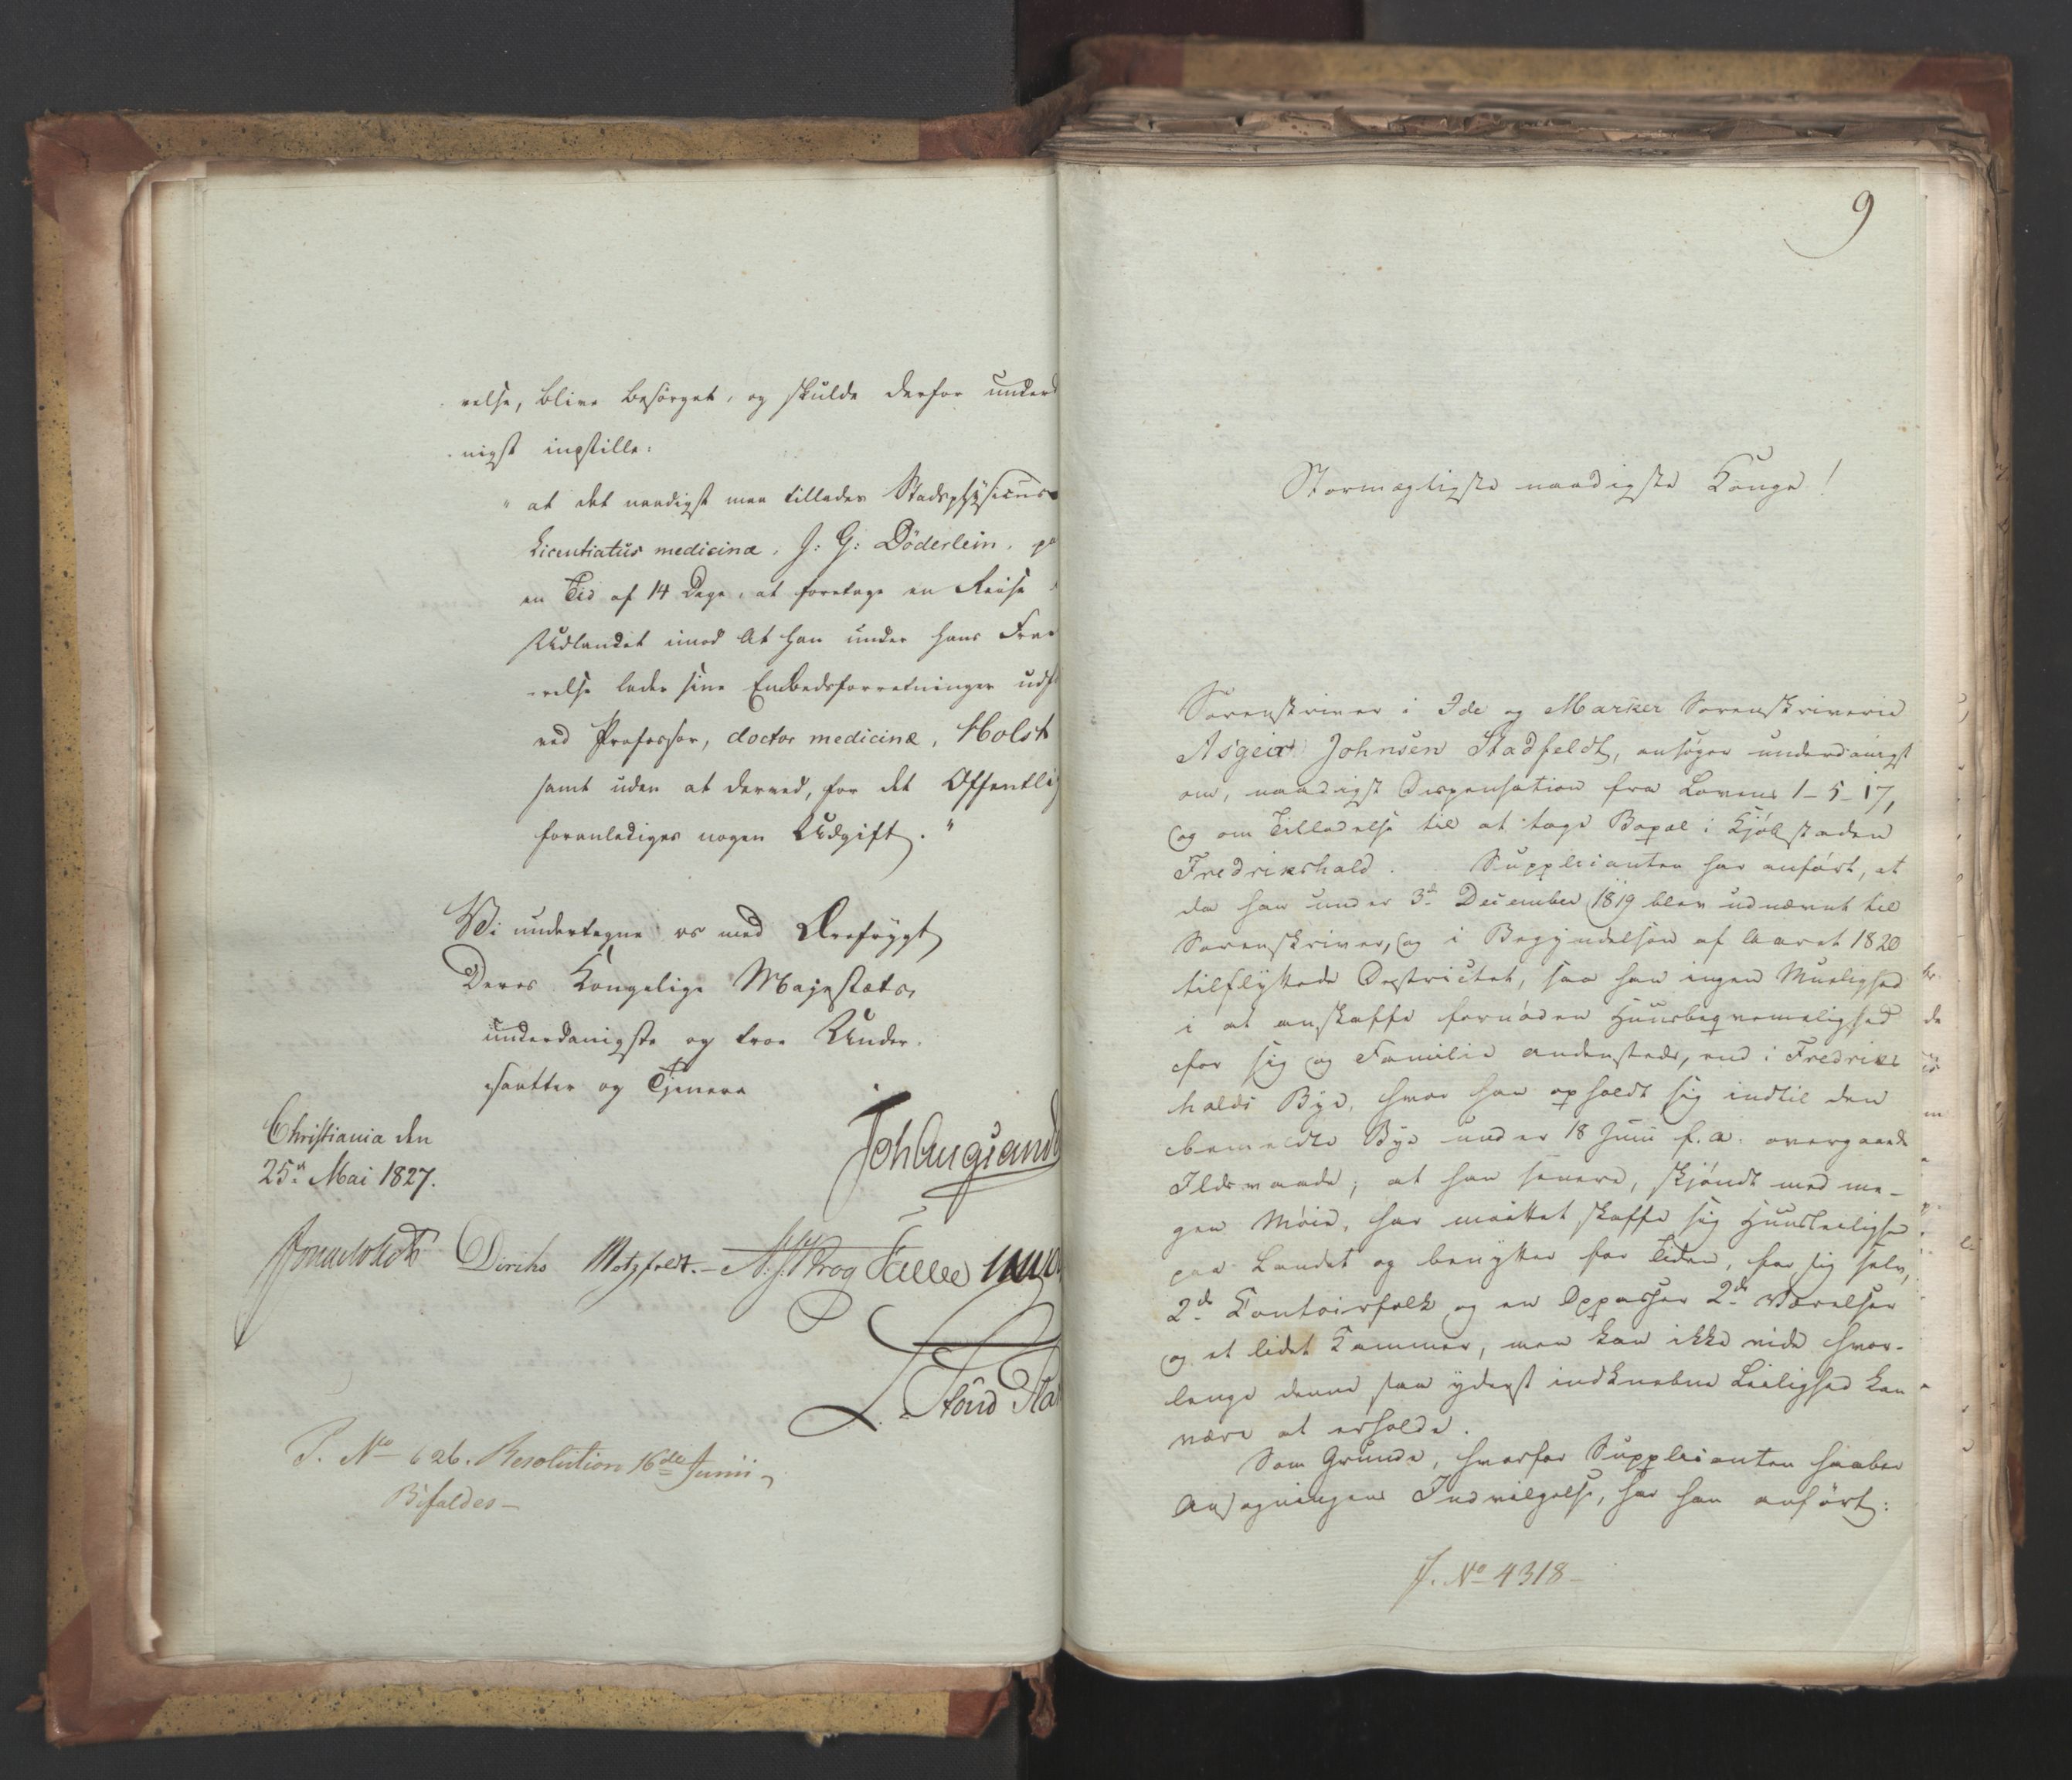 velse, blive besørget, og skulde derfor underd
nigst indstille:
" at det naadigst maa tillades Stadsphysicus
Licentiatus medicinæ, J: G: Döderlein, på
en Tid af 14 Dage, at foretage en Reise
Udlandet imod at han under hans Fra
velse lader sine Embedsforretninger udf
ved Professor, doctor medicinæ, Holst
samt uden at derved, for det Offentlig
foranlediges nogen Udgift."
Vi undertegne os med Ærefrygt
Deres Kongelige Majestæts,
underdanigste og troe Under-
saatter og Tjenere
Christiania den
25de Mai 1827.
Joh Aug Sand
Diriks Motzfeldt. Krog
P. No 626. Resolution 16de Junii,
Bifaldes-
9
Stormægtigste naadigste Konge!
Sorenskriver i Ide og Marker Sorenskriverie
Asgeir Johnsen Stadfeldt, ansøger underdanigst
om, naadigst Dispensation fra Lovens 1-5-17,
og om Tilladelse til at tage Bopæl i Kjøbstaden
Fredrikshald. Supplicanten har anført, at
da han under 3de December 1819 blev udnævnt til
Sorenskriver, og i Begyndelsen af Aaret 1820
tilflyttede Districtet, saa han ingen Muelighed
i at anskaffe fornøden Huusbeqvemmelighed
for sig og Familie andensteds, end i Fredriks
halds Bye, hvor han opholdt sig indtil den
bemeldte Bye under 18 Junii f. a. overgaaede
Ildsvaade; at han senere, skjøndt med me-
gen Møie, har maattet skaffe sig Huusleilighed
paa Landet og benytter for Tiden, for sig selv,
2de Contoirfolk og en Oppasser 2de Værelser
og et lidet Kammer, men kan ikke vide hvor-
længe denne saa yderst indknebne Leilighed kan
være at erholde.
Som Grunde, hvorfor Supplicanten haaber
Ansøgningens Indvilgelse, har han anført:
J. No 4318-